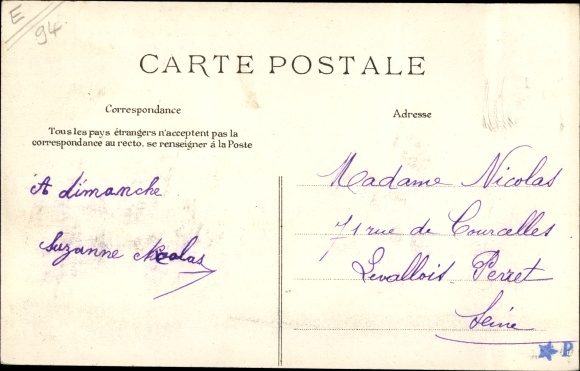 E
94.
CARTE POSTALE
Correspondance
Tous les pays étrangers n'acceptent pas la
correspondance au recto, se renseigner à la Poste
A dimanche
Suzanne Nicolas
Adresse
Madame Nicolas
71 rue de Courcelles
Levallois Perret
Seine
P